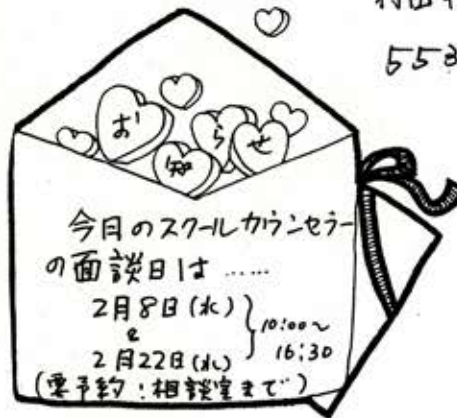 553
お知らせ
今日のスクールカウンセラー
の面談日は……
2月8日(水)
&
2月22日(水)
10:00~
16:30
(要予約:相談室まで)